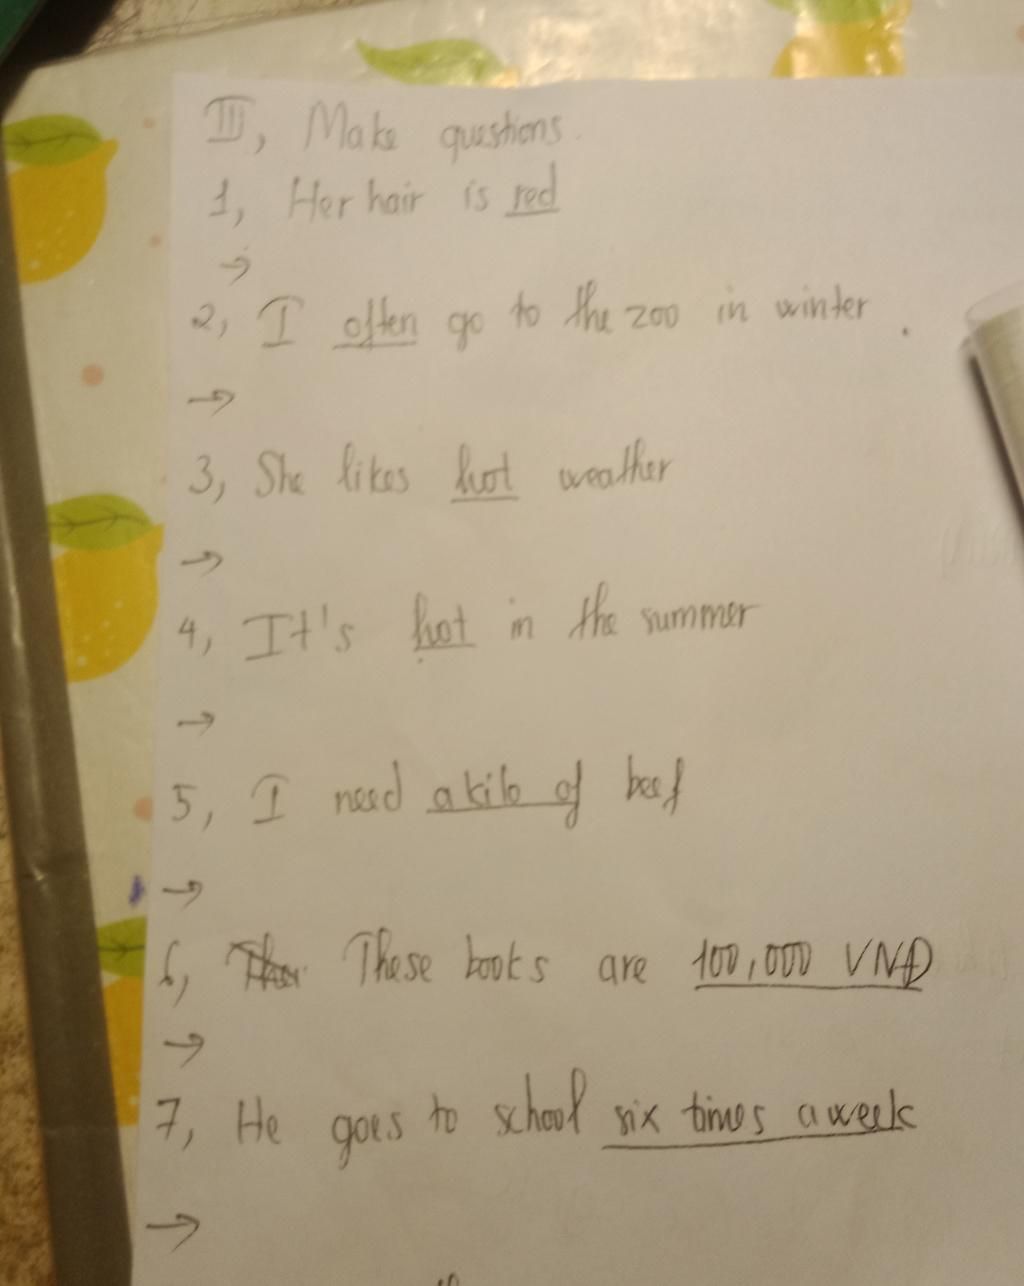 III, Make questions.
1, Her hair is red
→
2, I often go to the zoo in winter.
→
3, She likes hot weather
→
4, It's hot in the summer
→
5, I need a kilo of beef
→
6, These books are 100,000 VNĐ
→
7, He goes to school six times a week
→